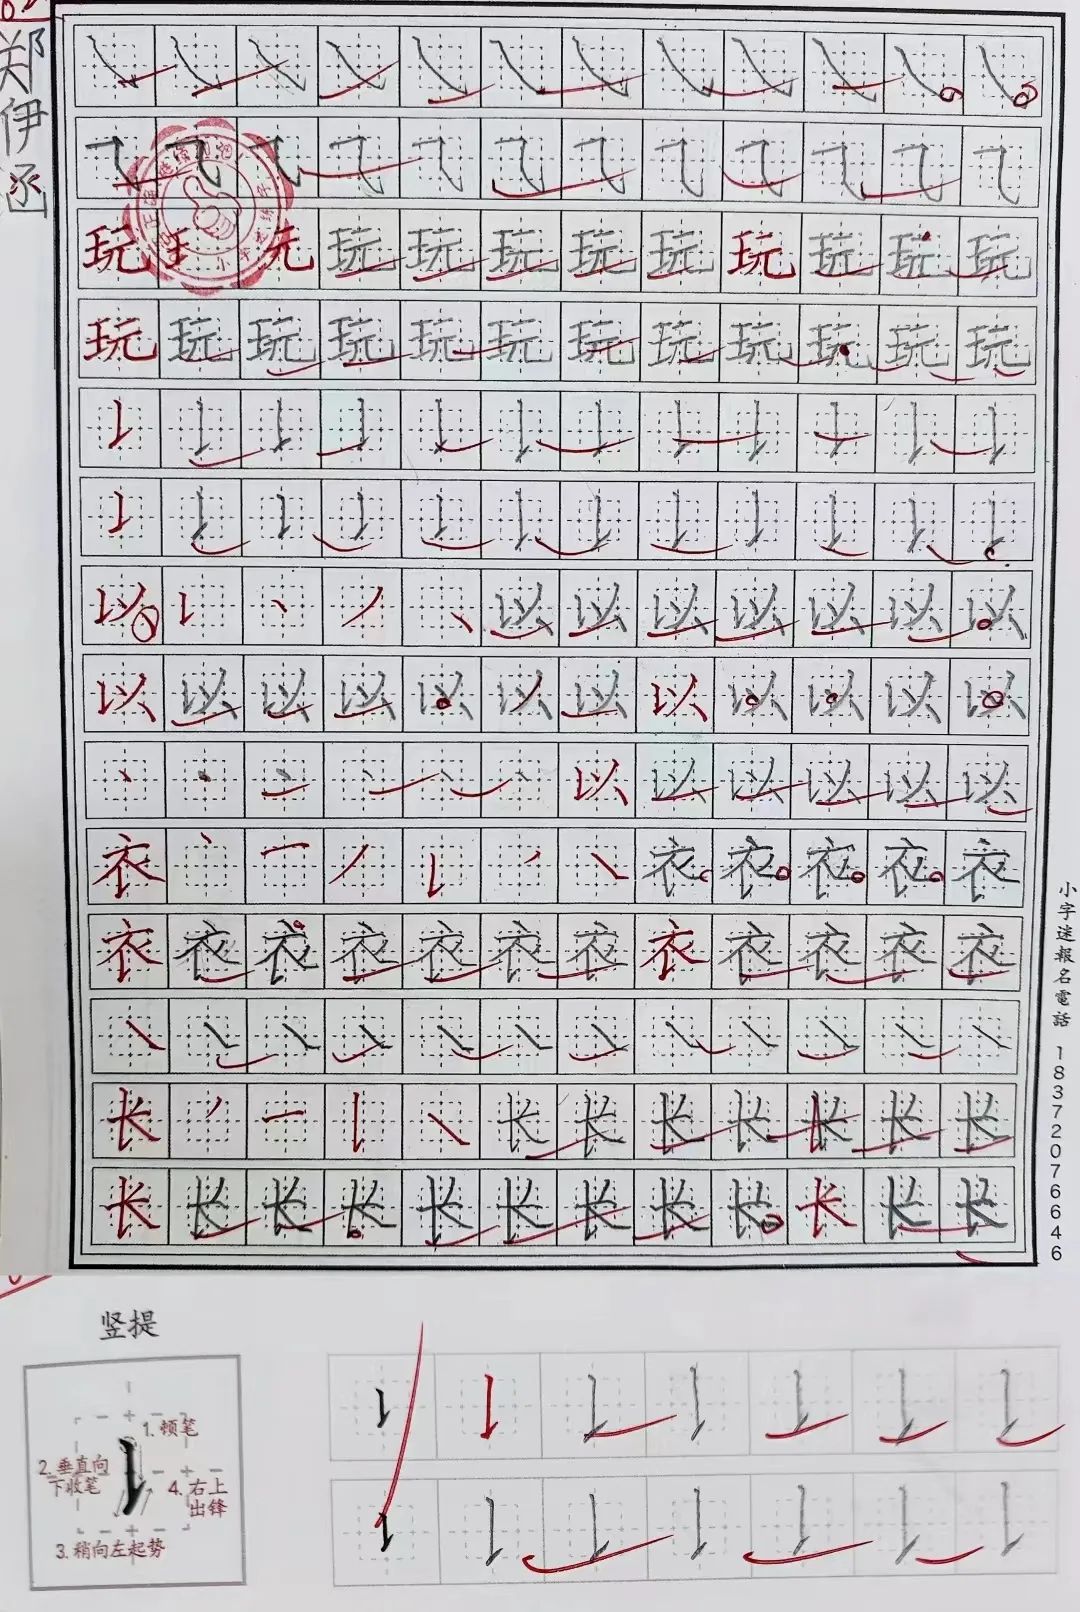 郑伊函
玩 王 元 玩 玩 玩 玩 玩 玩 玩 玩 玩
玩 玩 玩 玩 玩 玩 玩 玩 玩 玩 玩 玩
以 以 以 以 以 以 以 以
以 以 以 以 以 以 以 以 以 以 以 以
以 以 以 以 以 以
衣 衣 衣 衣 衣 衣
衣 衣 衣 衣 衣 衣 衣 衣 衣 衣 衣 衣
长 长 长 长 长 长 长 长
长 长 长 长 长 长 长 长 长 长 长 长
小字迷報名電話 18372076646
竖提
1.顿笔
2.垂直向
下收笔
4.右上
出锋
3.稍向左起势